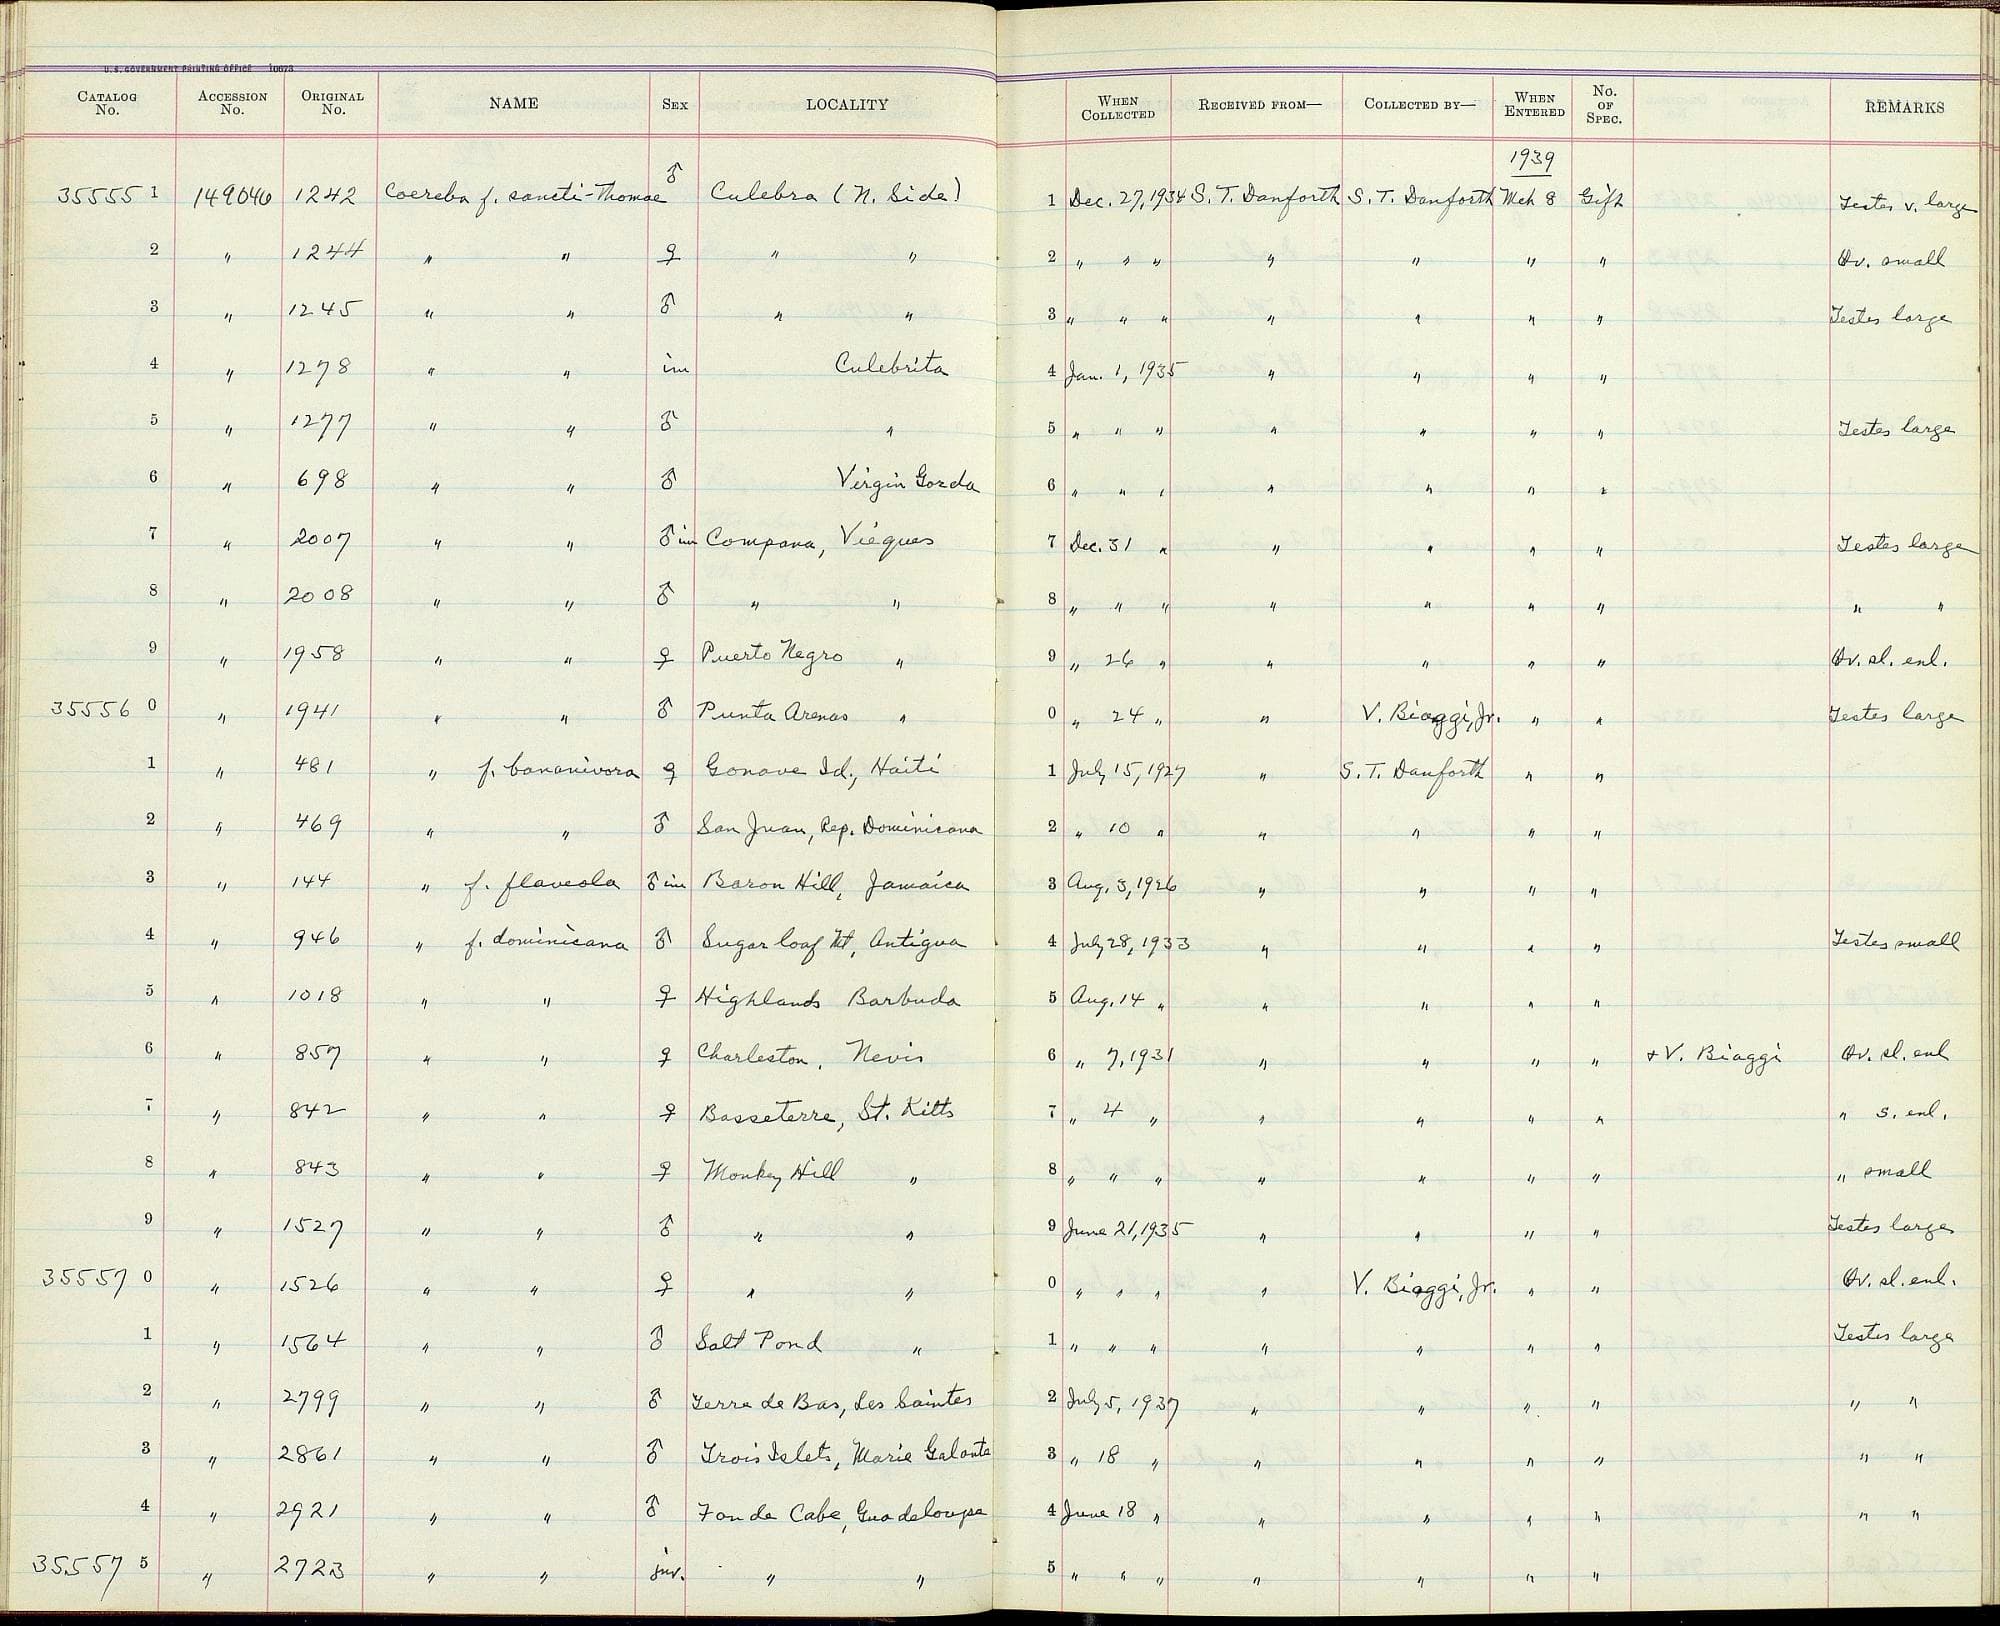 U.S. GOVERNMENT PRINTING OFFICE 10673
CATALOG No. ACCESSION No. ORIGINAL No. NAME SEX LOCALITY WHEN COLLECTED RECEIVED FROM— COLLECTED BY— WHEN ENTERED No. OF SPEC. REMARKS
1939
35555 1 149046 1242 Coereba f. sancti-Thomae ♂ Culebra (N. Side) 1 Dec. 27, 1934 S. T. Danforth S. T. Danforth Mch 8 Gift Testes v. large
2 " 1244 " " ♀ " " 2 " " " " " " " Ov. small
3 " 1245 " " ♂ " " 3 " " " " " " " Testes large
4 " 1278 " " im Culebrita 4 Jan. 1, 1935 " " " "
5 " 1277 " " ♂ " 5 " " " " " " " Testes large
6 " 698 " " ♂ Virgin Gorda 6 " " " " " " "
7 " 2007 " " ♂ im Compana, Vieques 7 Dec. 31 " " " " " Testes large
8 " 2008 " " ♂ " " 8 " " " " " " " " "
9 " 1958 " " ♀ Puerto Negro " 9 " 26 " " " " " Ov. sl. enl.
35556 0 " 1941 " " ♂ Punta Arenas " 0 " 24 " " V. Biaggi, Jr. " " Testes large
1 " 481 " f. bananivora ♀ Gonave Id., Haiti 1 July 15, 1927 " S. T. Danforth " "
2 " 469 " " ♂ San Juan, Rep. Dominicana 2 " 10 " " " " "
3 " 144 " f. flaveola ♂ im Baron Hill, Jamaica 3 Aug. 3, 1926 " " " "
4 " 946 " f. dominicana ♂ Sugar loaf Mt, Antigua 4 July 28, 1933 " " " " Testes small
5 " 1018 " " ♀ Highlands Barbuda 5 Aug. 14 " " " " "
6 " 857 " " ♀ Charleston, Nevis 6 " 7, 1931 " " " " + V. Biaggi Ov. sl. enl
7 " 842 " " ♀ Basseterre, St. Kitts 7 " 4 " " " " " " s. enl.
8 " 843 " " ♀ Monkey Hill " 8 " " " " " " " " small
9 " 1527 " " ♂ " " 9 June 21, 1935 " " " " Testes large
35557 0 " 1526 " " ♀ " " 0 " " " " V. Biaggi, Jr. " " Ov. sl. enl.
1 " 1564 " " ♂ Salt Pond " 1 " " " " " " " Testes large
2 " 2799 " " ♂ Terre de Bas, Les Saintes 2 July 5, 1937 " " " " " "
3 " 2861 " " ♂ Trois Islets, Marie Galante 3 " 18 " " " " " " "
4 " 2921 " " ♂ Fonde Cabe, Guadeloupe 4 June 18 " " " " " " "
35557 5 " 2723 " " juv. " " 5 " " " " " " "